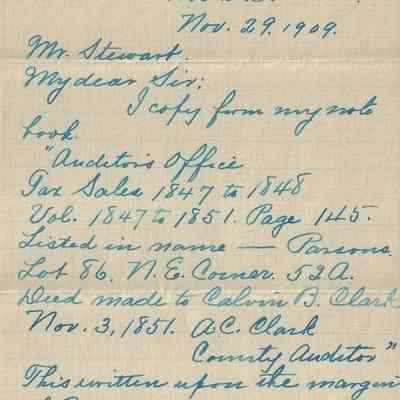 Nov. 29, 1909.
Mr. Stewart.
My dear Sir;
I copy from my note
book.
"Auditors Office
Tax Sales 1847 to 1848
Vol. 1847 to 1851. Page 145.
Listed in name — Parsons.
Lot 86. N.E. Corner. 52 A.
Deed made to Calvin B. Clark
Nov. 3, 1851. A.C. Clark
County Auditor"
This written upon the margin